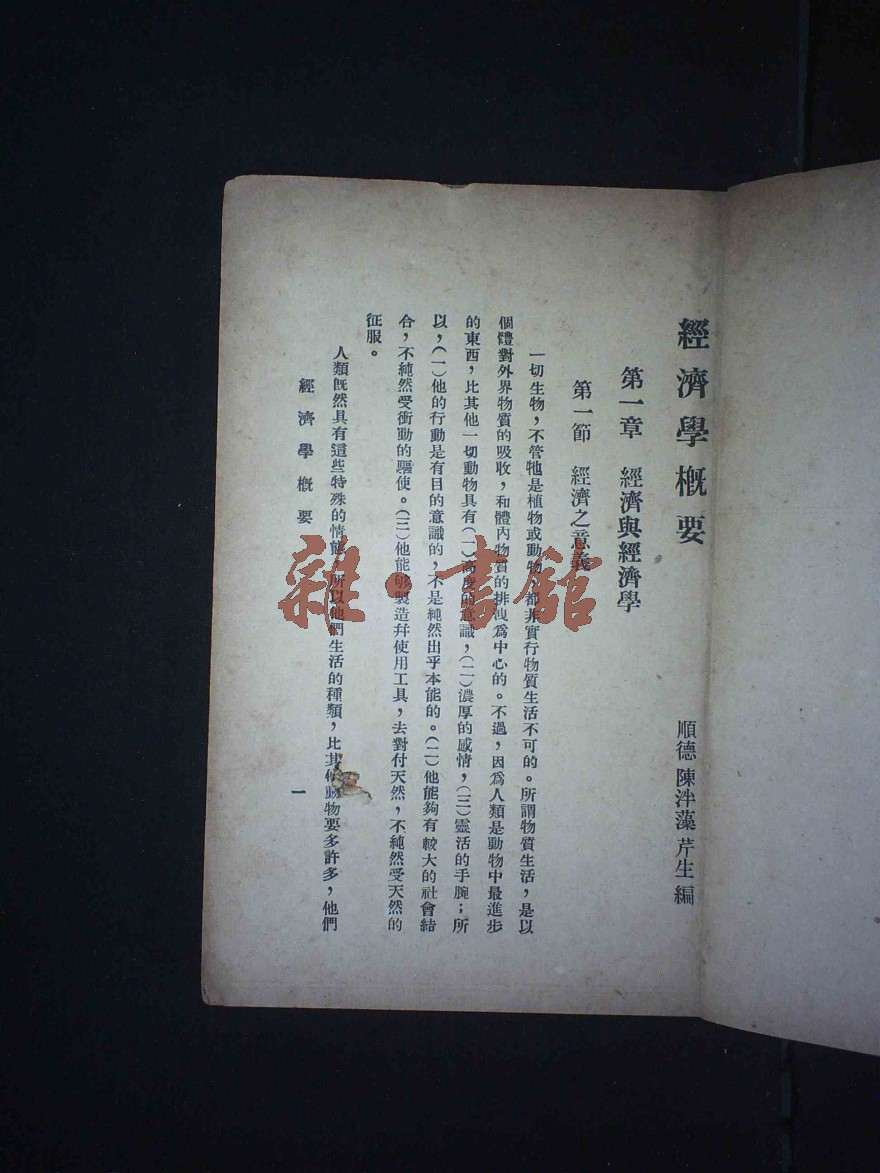 經濟學概要
順德 陳泮藻 芹生 編
第一章 經濟與經濟學
第一節 經濟之意義
一切生物，不管牠是植物或動物，都非實行物質生活不可的。所謂物質生活，是以
個體對外界物質的吸收，和體內物質的排洩爲中心的。不過，因爲人類是動物中最進步
的東西，比其他一切動物具有（一）高度的意識，（二）濃厚的感情，（三）靈活的手腕；所
以，（一）他的行動是有目的意識的，不是純然出乎本能的。（二）他能夠有較大的社會結
合，不純然受衝動的驅使。（三）他能够製造幷使用工具，去對付天然，不純然受天然的
征服。
人類旣然具有這些特殊的情態，所以他們生活的種類，比其他動物要多許多，他們
經濟學概要
一
雜·書館